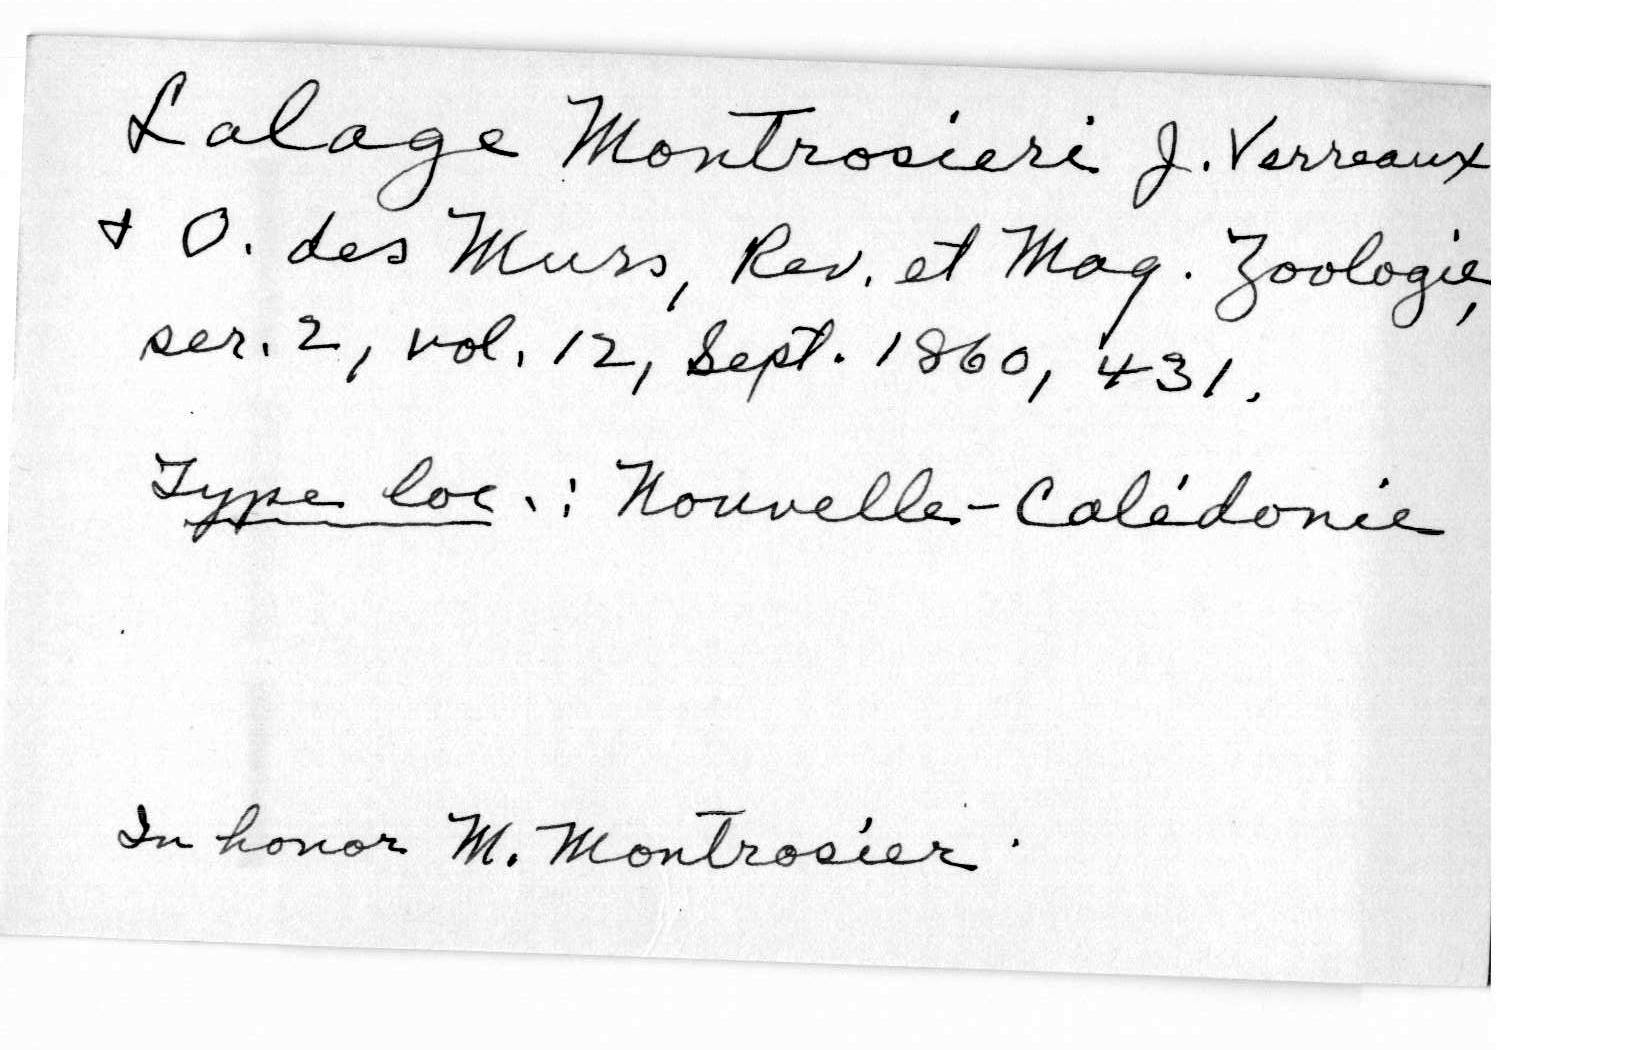 Lalage Montrosieri J. Verreaux
& O. des Murs, Rev. et Mag. Zoologie,
ser. 2, vol. 12, Sept. 1860, 431.
Type loc.: Nouvelle-Calédonie
In honor M. Montrosier.